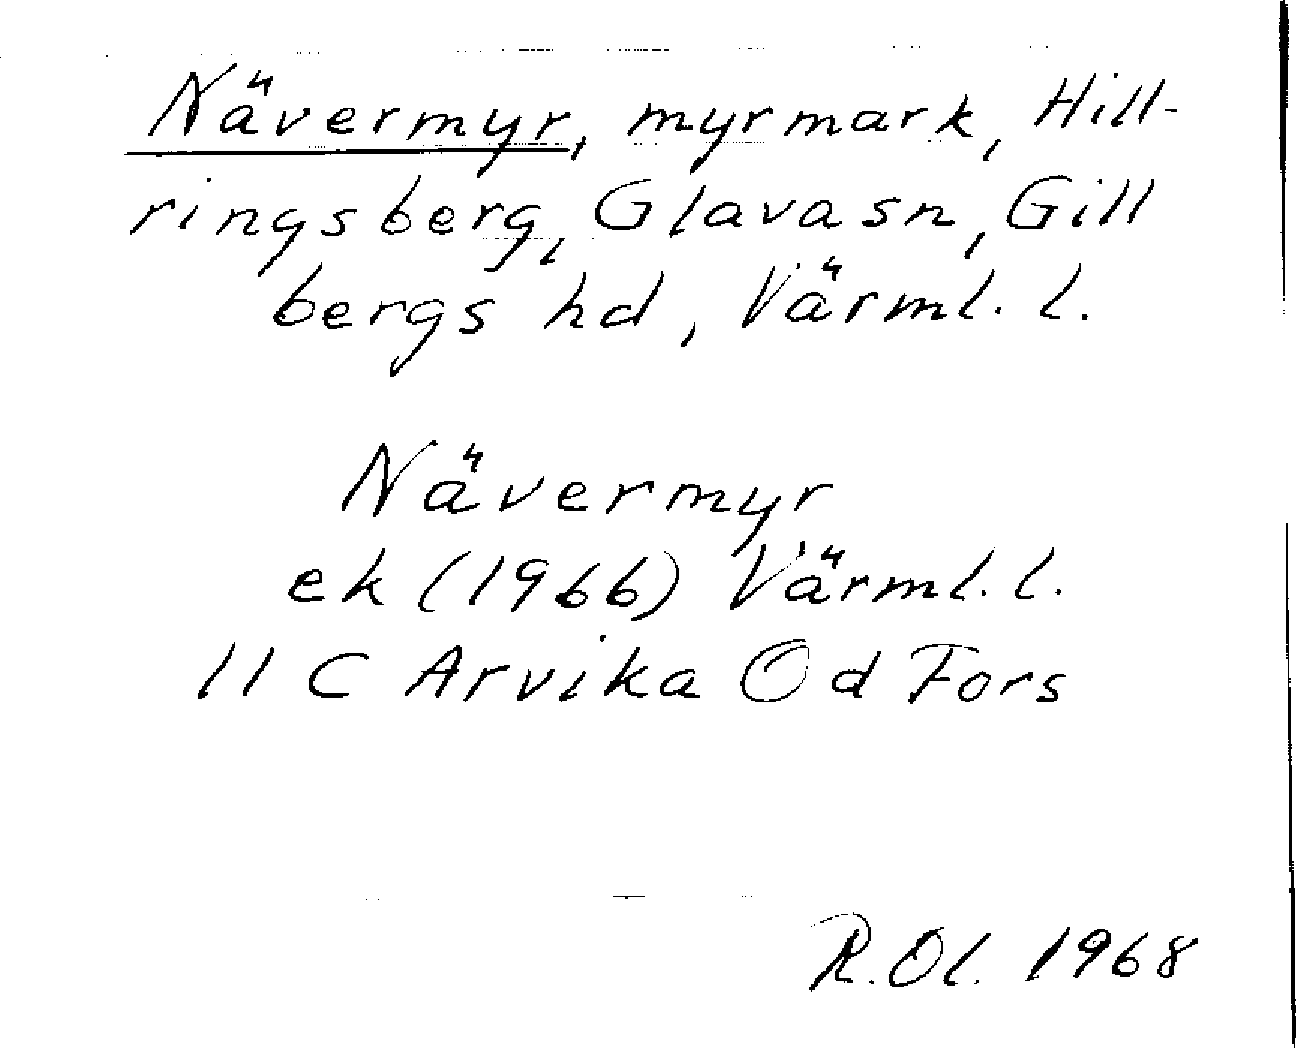 Nävermyr, myrmark, Hill-
ringsberg, Glavasn, Gill
bergs hd, Värml. l.
Nävermyr
ek (1966) Värml. l.
11 C Arvika Od Fors
R. Ol. 1968